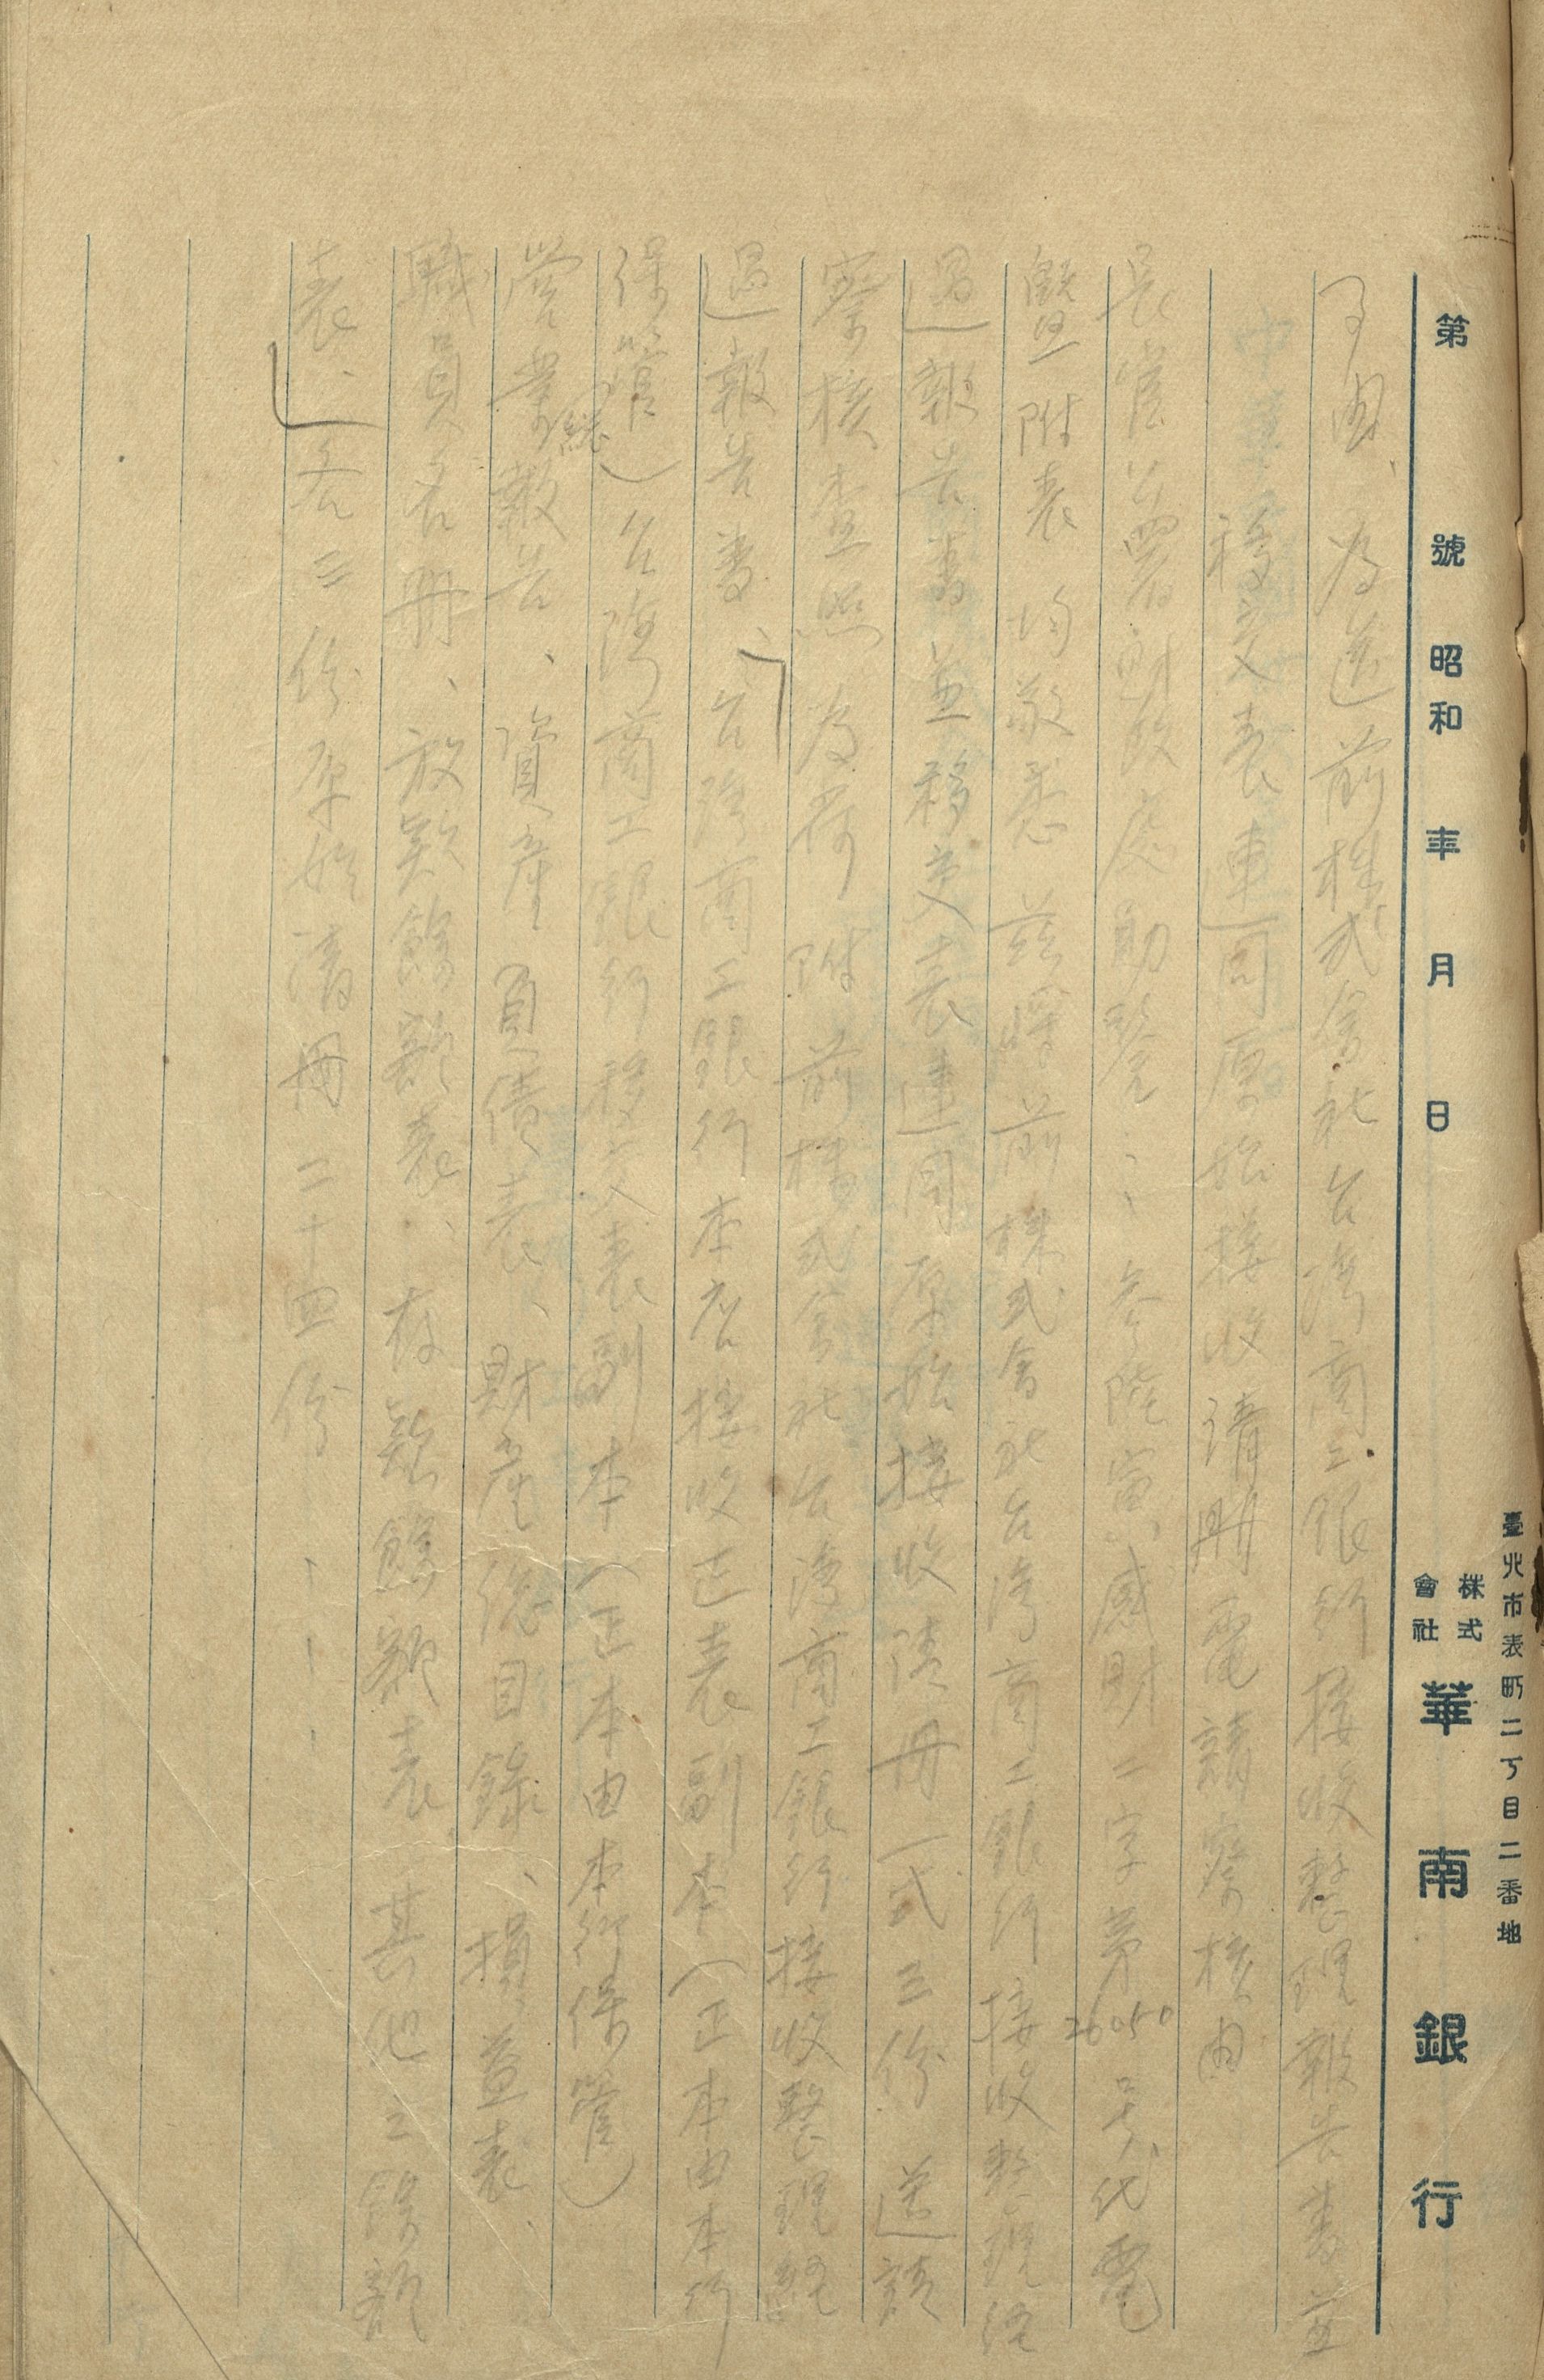 臺北市表町二丁目二番地
株式會社 華南銀行
第 號 昭和 年 月 日
事由、為送前株式會社台灣商工銀行接收整理報告書並
移交表連同原始接收清冊電請察核由
長官公署財政處助鑒：、參陸寅 感財二字第26050号代電
暨附表均敬悉 茲將前株式會社台灣商工銀行接收整理經
過報告書並移交表連同原始接收清冊一式三份 送請
察核查照為荷 附前株式會社台灣商工銀行接收整理經
過報告書、台灣商工銀行本店接收正表副本（正本由本行
保管）台灣商工銀行移交表副本（正本由本行保管）
營業報告、資產負債表、財產總目錄、損益表、
總
職員名冊、放款餘額表、存款餘額表 其他之餘額
表、各三份原始清冊二十四份